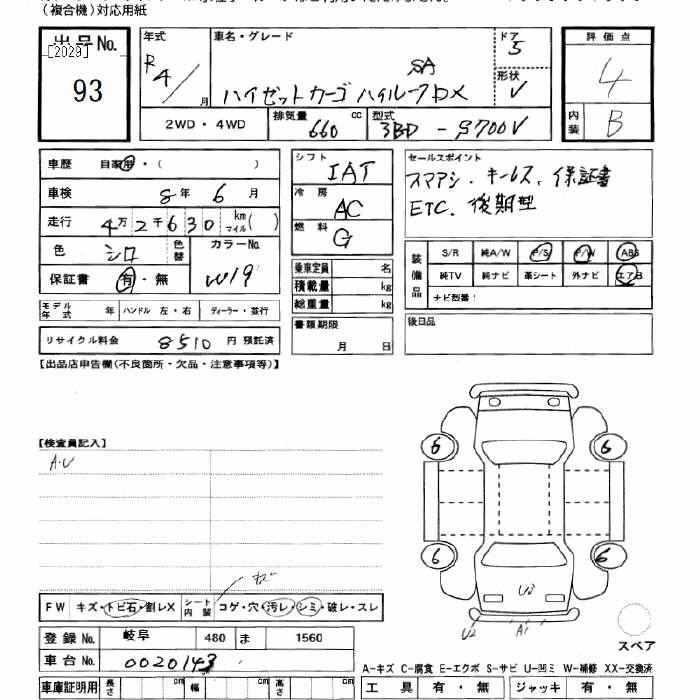 (複合機)対応用紙
出品No.
[2029]
93
年式
R4/
月
車名・グレード
SA
ハイゼットカーゴ ハイルーフDX
ドア
5
形状
V
評価点
4
内装
B
2WD・4WD
排気量
660
cc
型式
3BD - S700V
車歴
自家用・( )
車検
8年 6月
走行
4万2千630
km
マイル
( )
色
シロ
色替
カラーNo.
W19
保証書
有・無
シフト
IAT
冷房
AC
燃料
G
乗車定員
名
積載量
kg
総重量
kg
書類期限
月 日
セールスポイント
スマアシ、キーレス、保証書
ETC、後期型
装備品
S/R
純A/W
P/S
P/W
ABS
純TV
純ナビ
革シート
外ナビ
エアB
ナビ型番:
後日品
モデル年式
年
ハンドル 左・右
ディーラー・並行
リサイクル料金
8510
円 預託済
【出品店申告欄(不良箇所・欠品・注意事項等)】
【検査員記入】
A・U
6
6
6
6
U3
U2
A1
スペア
FW
キズ・トビ石・割レX
シート内装
コゲ・穴・汚レ・シミ・破レ・スレ
登録No.
岐阜
480
ま
1560
車台No.
0020143
A-キズ C-腐食 E-エクボ S-サビ U-凹ミ W-補修 XX-交換済
車庫証明用
長さ
cm
幅
cm
高さ
cm
工具
有・無
ジャッキ
有・無